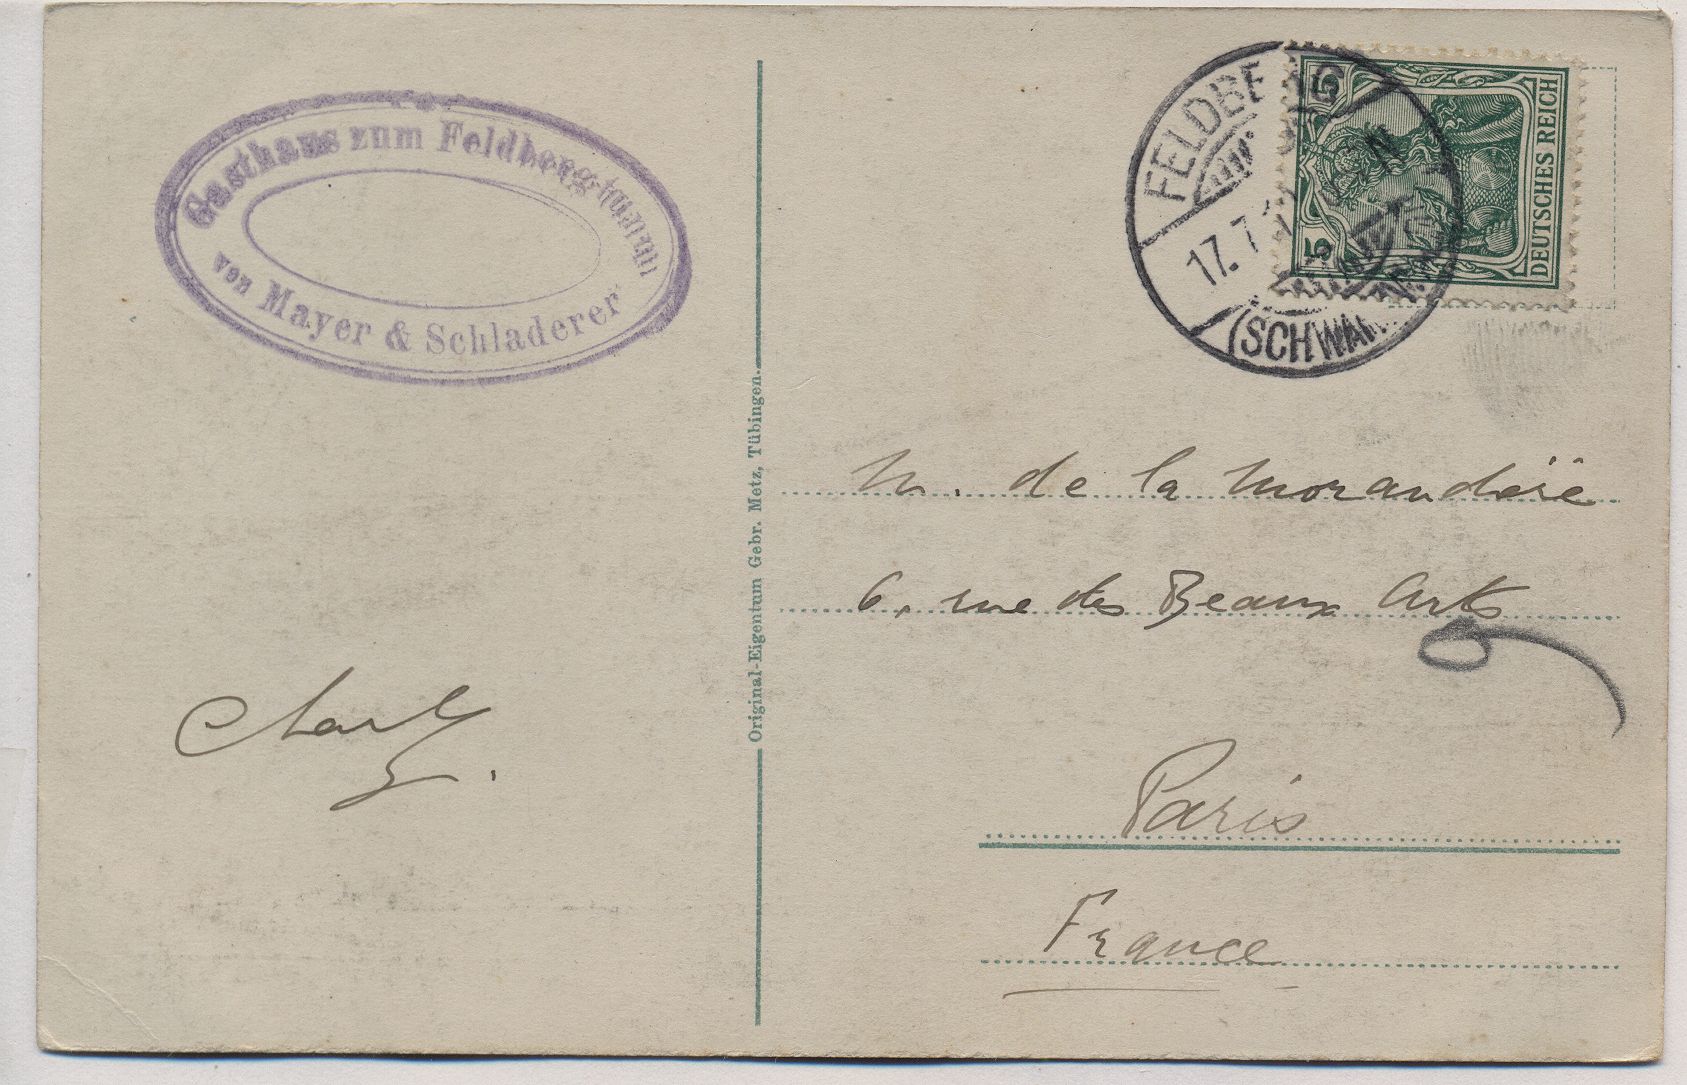 Gasthaus zum Feldbergturm
von Mayer & Schladerer
Original-Eigentum Gebr. Metz, Tübingen.
FELDBERG
17. 7.
(SCHWA
5
5
DEUTSCHES REICH
M. de la Morandière
6, rue des Beaux Arts
6
Paris
France